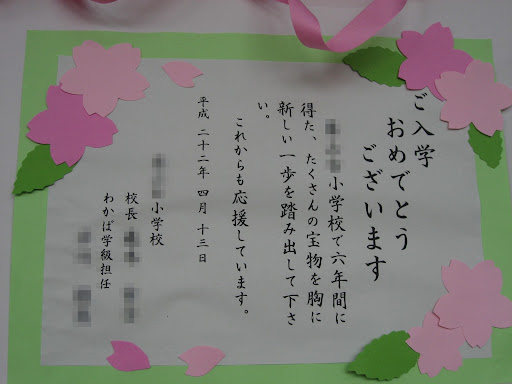 ご入学
おめでとう
ございます
小学校で六年間に
得た、たくさんの宝物を胸に
新しい一歩を踏み出して下さ
い。
これからも応援しています。
平成 二十二年 四月 十三日
小学校
校長
わかば学級担任